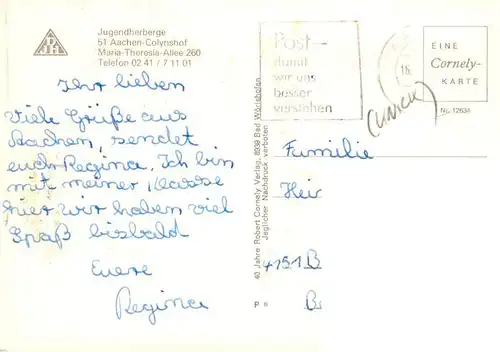 Jugendherberge
51 Aachen-Colynshof
Maria-Theresia-Allee 260
Telefon 02 41 / 7 11 01
Ihr lieben
Viele Grüße aus
Aachen, sendet
euch Regina. Ich bin
mit meiner Klasse
hier wir haben viel
Spaß bisbald
Euere
Regina
40 Jahre Robert Cornely Verlag, 8939 Bad Wörishofen
Jeglicher Nachdruck verboten
P 8
Post-
damit
wir uns
besser
verstehen
16.
EINE
Cornely-
KARTE
Nr. 12634
Familie
Heir
4151 B
Br